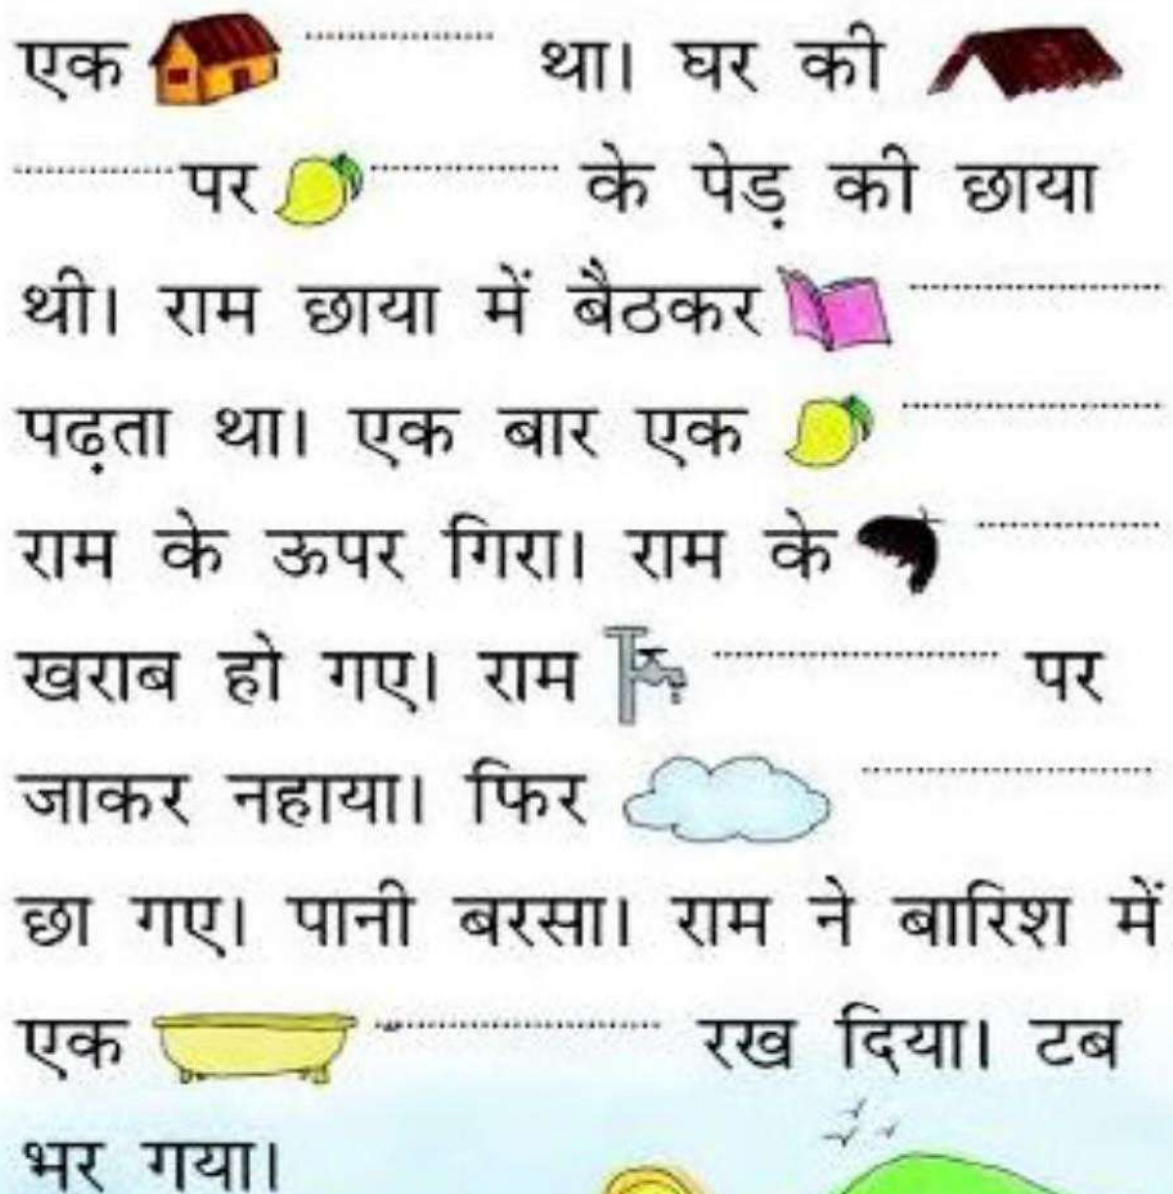 एक ................ था। घर की
............ पर ................ के पेड़ की छाया
थी। राम छाया में बैठकर ................
पढ़ता था। एक बार एक ................
राम के ऊपर गिरा। राम के ................
खराब हो गए। राम ................ पर
जाकर नहाया। फिर ................
छा गए। पानी बरसा। राम ने बारिश में
एक ................ रख दिया। टब
भर गया।